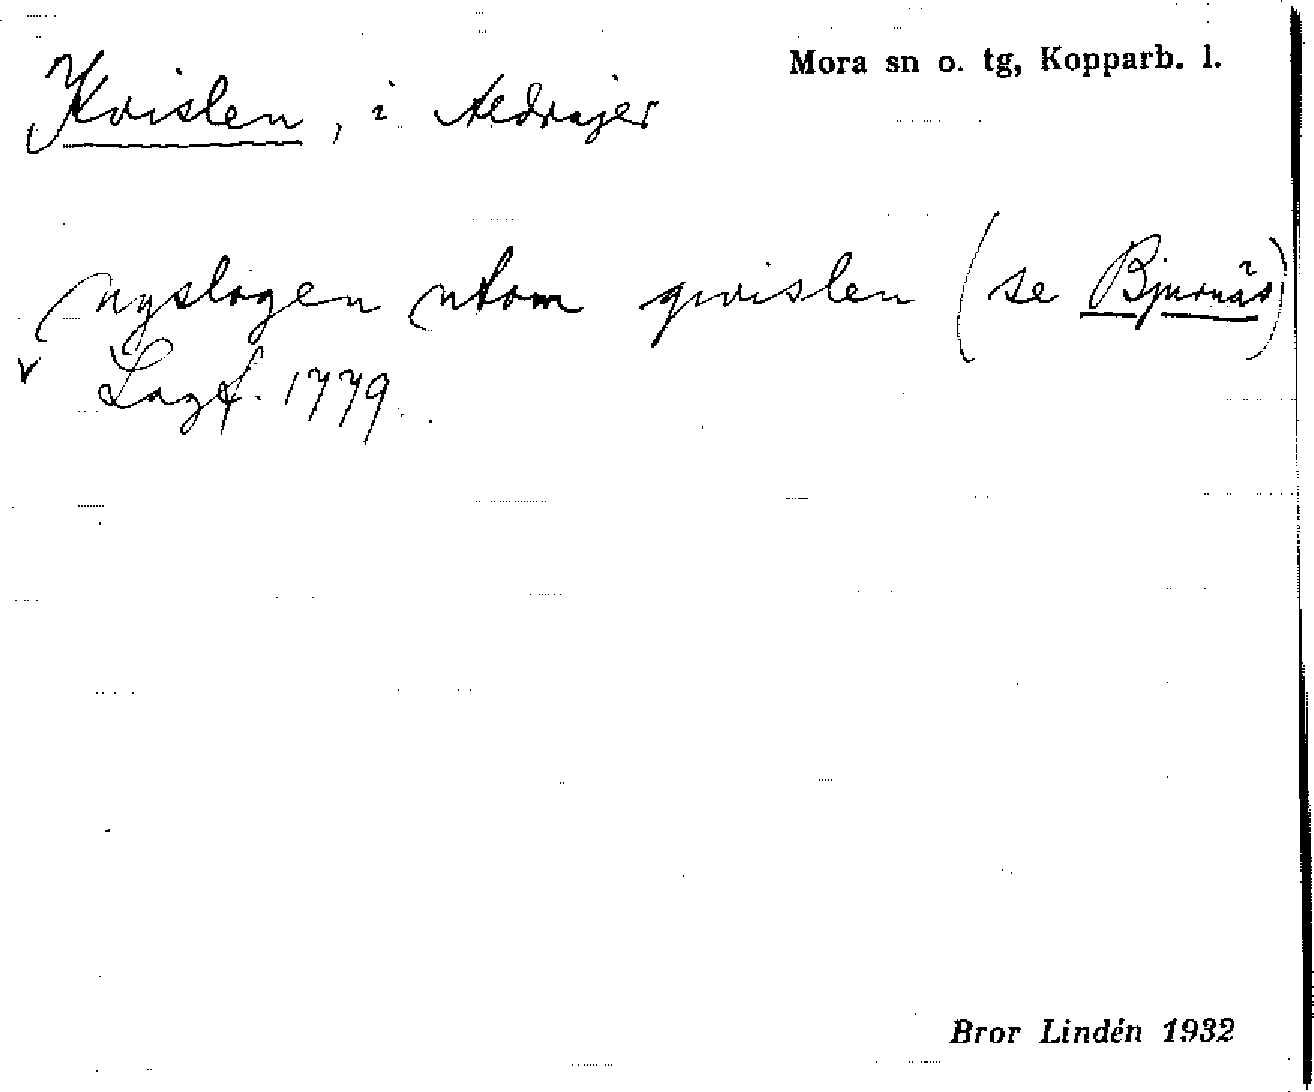 Mora sn o. tg, Kopparb. l.
Kvislen, i
nyslogen utom qwislen (se Bjurnäs)
Lagf. 1779.
Bror Lindén 1932